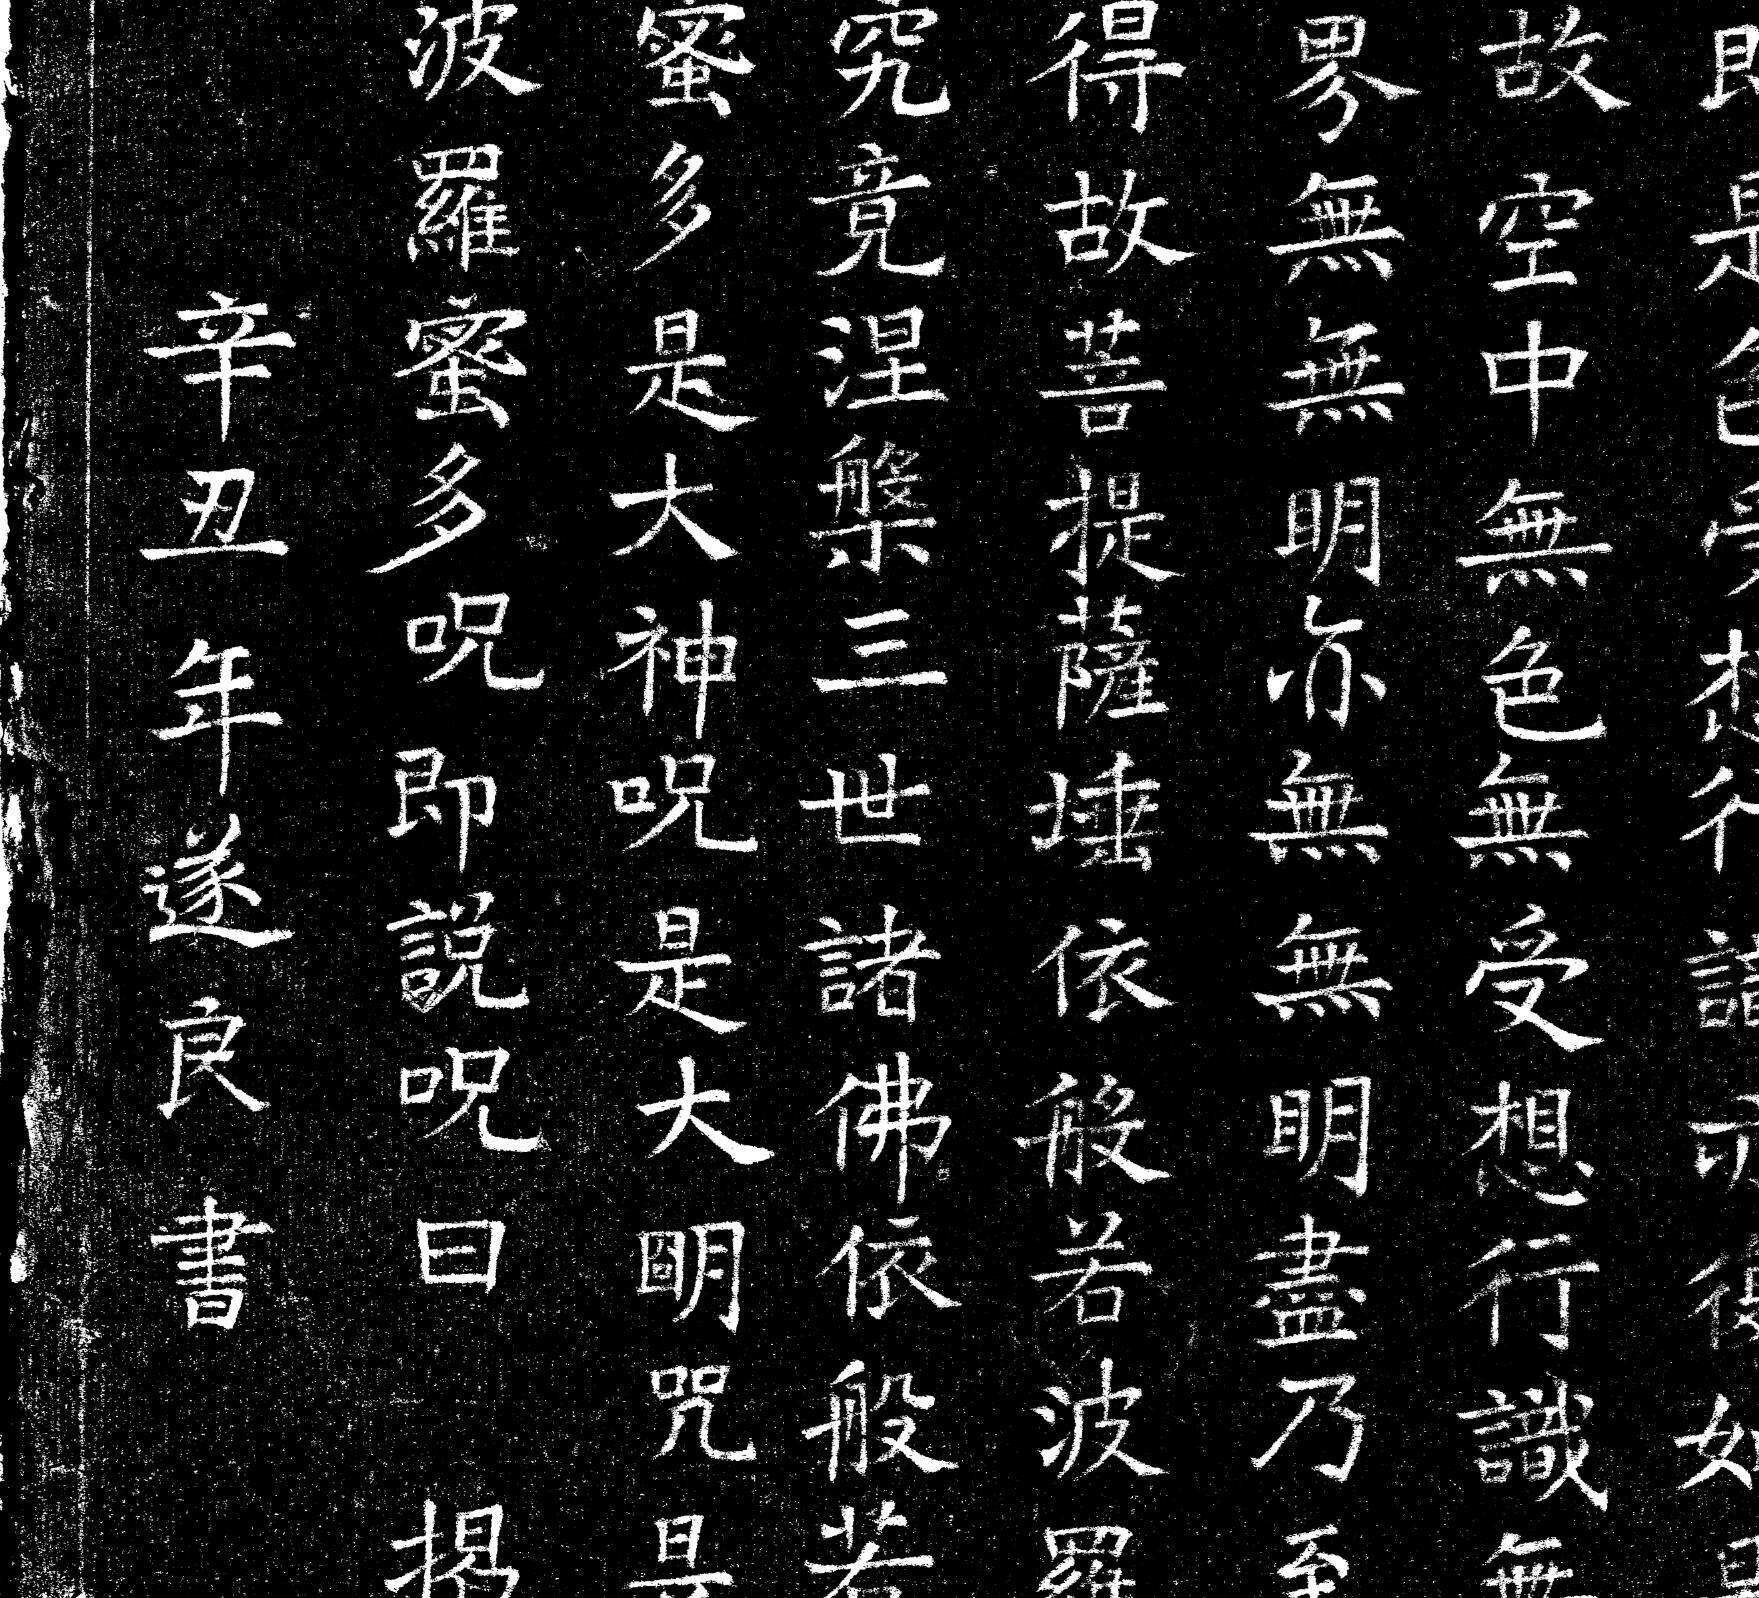 即是色受想行識亦復如是
故空中無色無受想行識無
界無無明亦無無明盡乃至
得故菩提薩埵依般若波羅
究竟涅槃三世諸佛依般若
蜜多是大神呪是大明咒是
波羅蜜多呪即說呪曰 揭
辛丑年遂良書